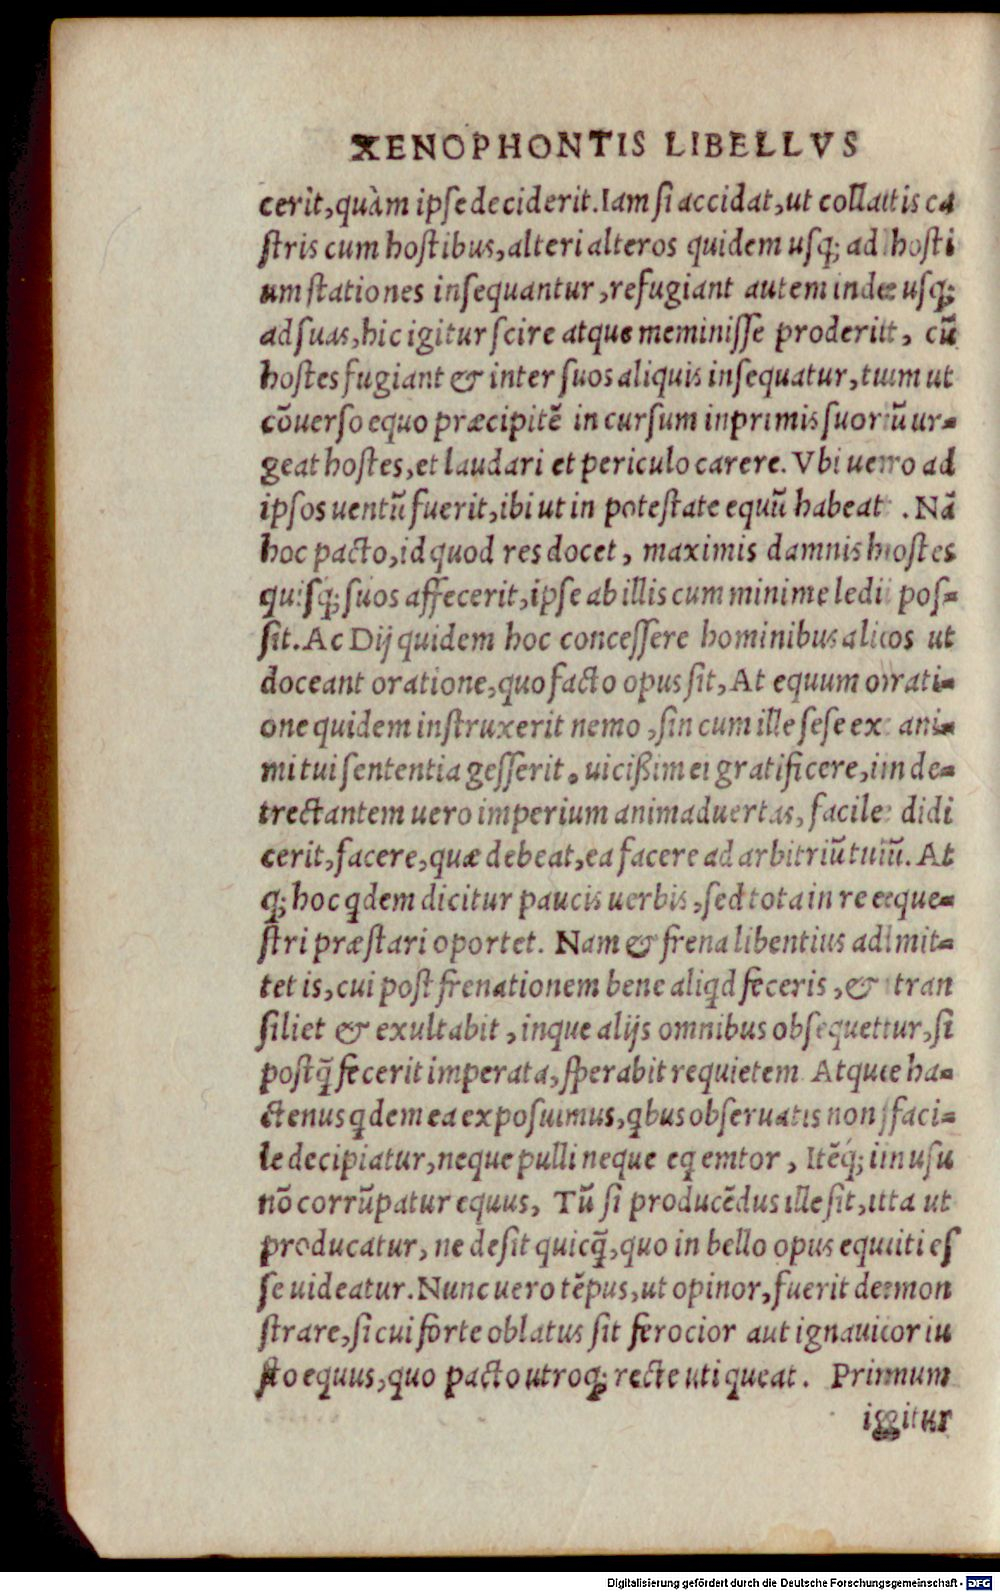 XENOPHONTIS LIBELLVS
cerit, quàm ipse deciderit. Iam si accidat, ut collatis ca
stris cum hostibus, alteri alteros quidem usq; ad hosti
um stationes insequantur, refugiant autem inde usq;
ad suas, hic igitur scire atque meminisse proderit, cũ
hostes fugiant & inter suos aliquis insequatur, tum ut
cõuerso equo præcipitẽ in cursum inprimis suorũ ur-
geat hostes, et laudari et periculo carere. Vbi uero ad
ipsos uentũ fuerit, ibi ut in potestate equũ habeat. Nã
hoc pacto, id quod res docet, maximis damnis hostes
quisq; suos affecerit, ipse ab illis cum minime ledi pos-
sit. Ac Dij quidem hoc concessere hominibus alios ut
doceant oratione, quo facto opus sit, At equum orati-
one quidem instruxerit nemo, sin cum ille sese ex ani-
mi tui sententia gesserit, uicißim ei gratificere, in de-
trectantem uero imperium animaduertas, facile didi
cerit, facere, quæ debeat, ea facere ad arbitriũ tuũ. At
q; hoc qdem dicitur paucis uerbis, sed tota in re eque-
stri præstari oportet. Nam & frena libentius admit-
tet is, cui post frenationem bene aliqd feceris, & tran
siliet & exultabit, inque alijs omnibus obsequetur, si
postq̃ fecerit imperata, sperabit requietem. Atque ha-
ctenus qdem ea exposuimus, qbus obseruatis non faci-
le decipiatur, neque pulli neque eq emtor, Itẽq; in usu
nõ corrũpatur equus, Tũ si producẽdus ille sit, ita ut
producatur, ne desit quicq̃, quo in bello opus equiti es
se uideatur. Nunc uero tẽpus, ut opinor, fuerit demon
strare, si cui forte oblatus sit ferocior aut ignauior iu
sto equus, quo pacto utroq; recte uti queat. Primum
igitur
Digitalisierung gefördert durch die Deutsche Forschungsgemeinschaft - DFG